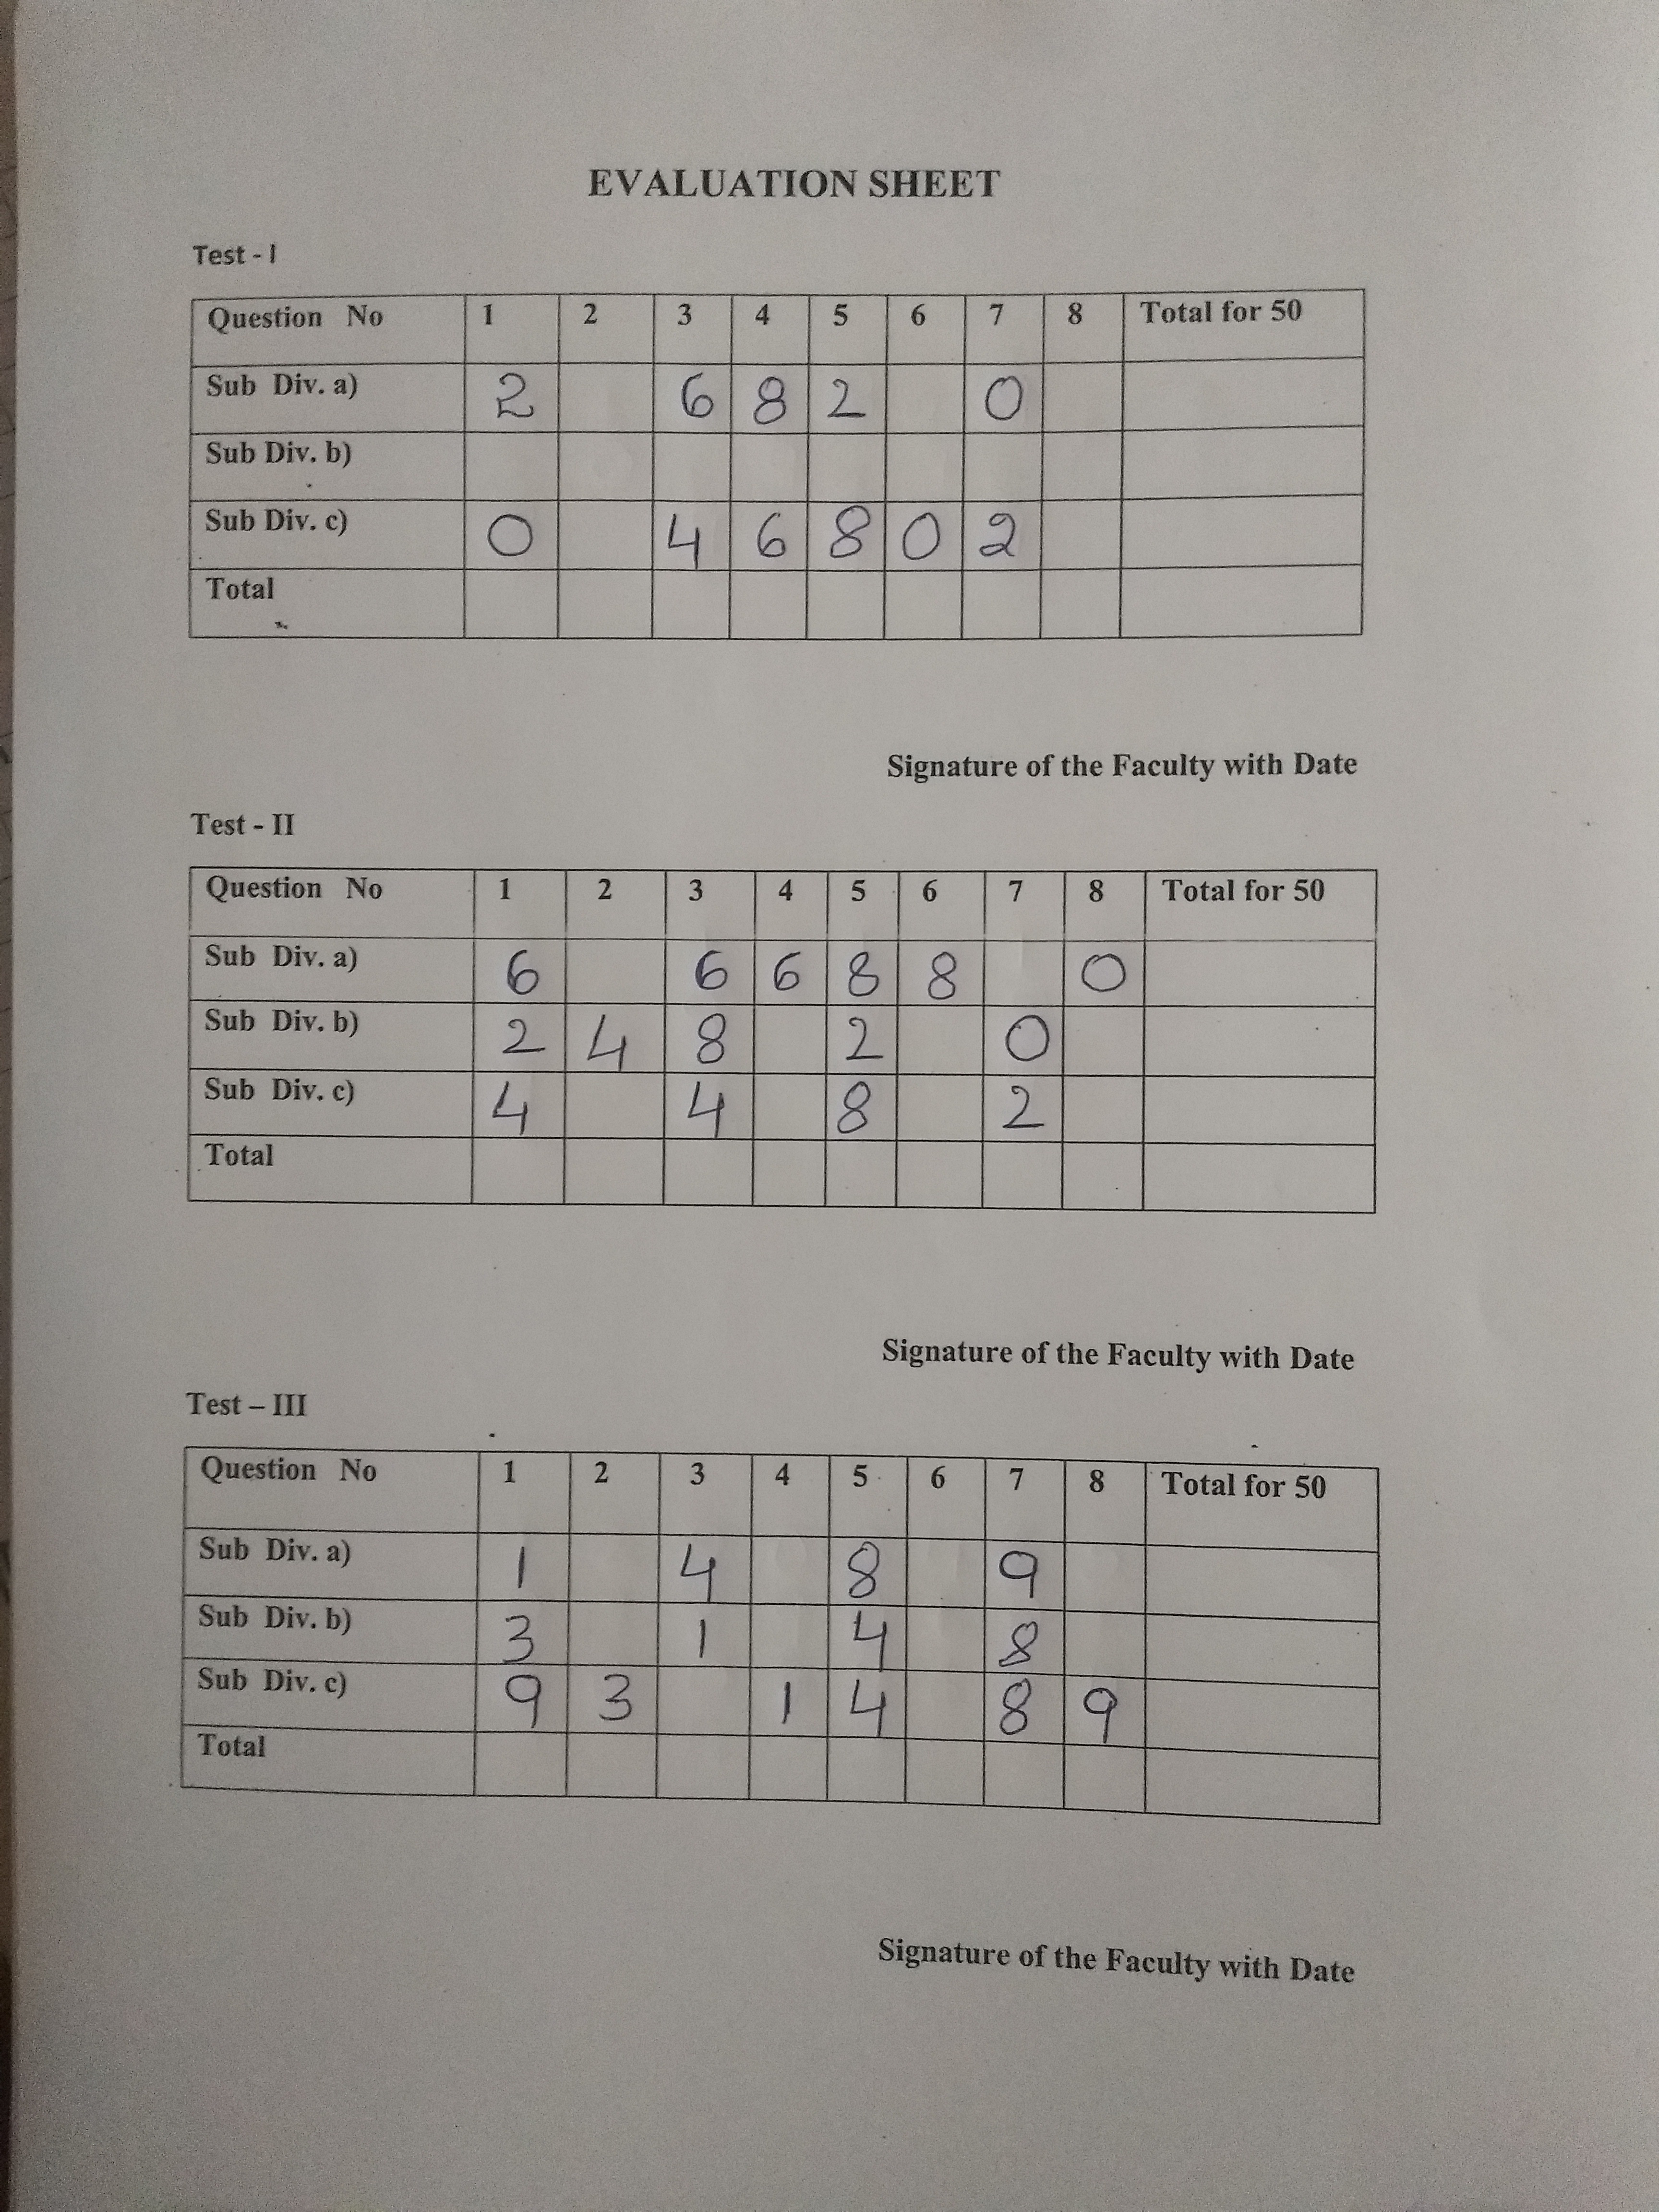 EVALUATION SHEET
Test - I
Question No 1 2 3 4 5 6 7 8 Total for 50
Sub Div. a) 2 6 8 2 0
Sub Div. b)
Sub Div. c) 0 4 6 8 0 2
Total
Signature of the Faculty with Date
Test - II
Question No 1 2 3 4 5 6 7 8 Total for 50
Sub Div. a) 6 6 6 8 8 0
Sub Div. b) 2 4 8 2 0
Sub Div. c) 4 4 8 2
Total
Signature of the Faculty with Date
Test – III
Question No 1 2 3 4 5 6 7 8 Total for 50
Sub Div. a) 1 4 8 9
Sub Div. b) 3 1 4 8
Sub Div. c) 9 3 1 4 8 9
Total
Signature of the Faculty with Date